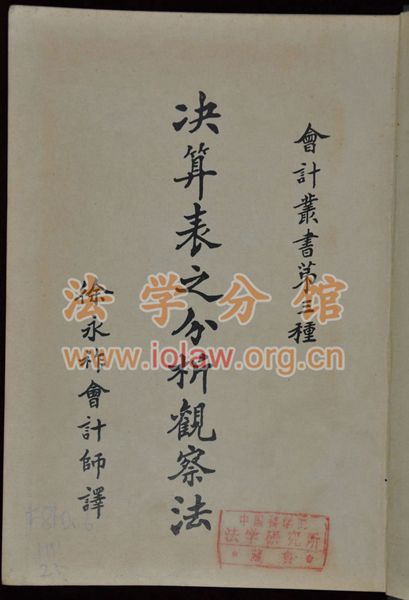 會計叢書第三種
決算表之分析觀察法
徐永祚會計師譯
法学分馆
www.iolaw.org.cn
中國科學院
法学研究所
藏書